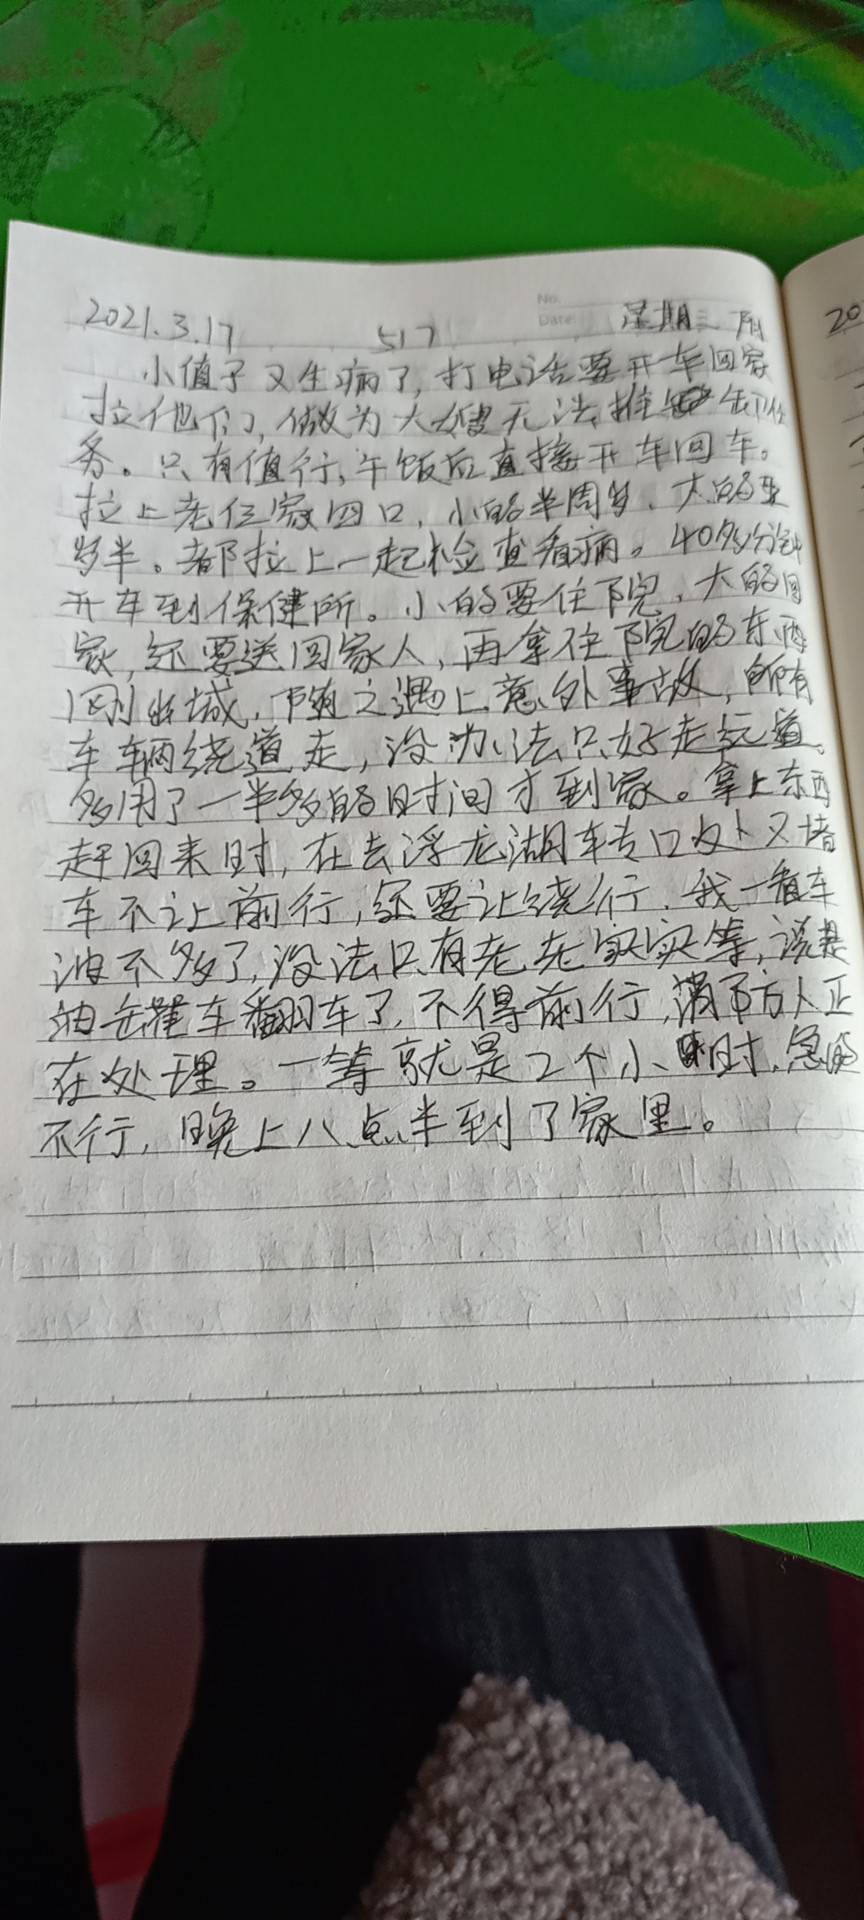 No.
2021.3.17 517 Date 星期三 阴 20
小值子又生病了,打电话要开车回家
拉他们,做为大嫂无法推
务。只有值行,午饭后直接开车回车。
拉上老三家四口,小的半周岁、大的
岁半。都拉上一起检查看病。40多分钟
开车到保健所。小的要住院、大的回
家,还要送回家人,再拿住院的东西
刚出城,随之遇上意外事故,所有
车辆绕道走,没办法只好走远道。
多用了一半多的时间才到家。拿上东西
赶回来时,在去浮龙湖车专口处又堵
车不让前行,还要让绕行.我一看车
油不多了,没法只有老老实实等,说是
油罐车翻车了,不得前行,消防人正
在处理。一等就是2个小时.急
不行,晚上八点半到了家里。